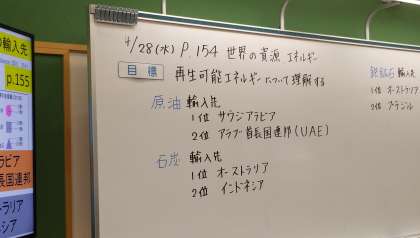 4/28(水) P.154 世界の資源 エネルギー
目標 再生可能エネルギーについて理解する
原油 輸入先
1位 サウジアラビア
2位 アラブ首長国連邦(UAE)
石炭 輸入先
1位 オーストラリア
2位 インドネシア
鉄鉱石 輸入先
1位 オーストラリ
2位 ブラジル
の輸入先
p.155
ラビア
長国連邦
トラリア
ネシア